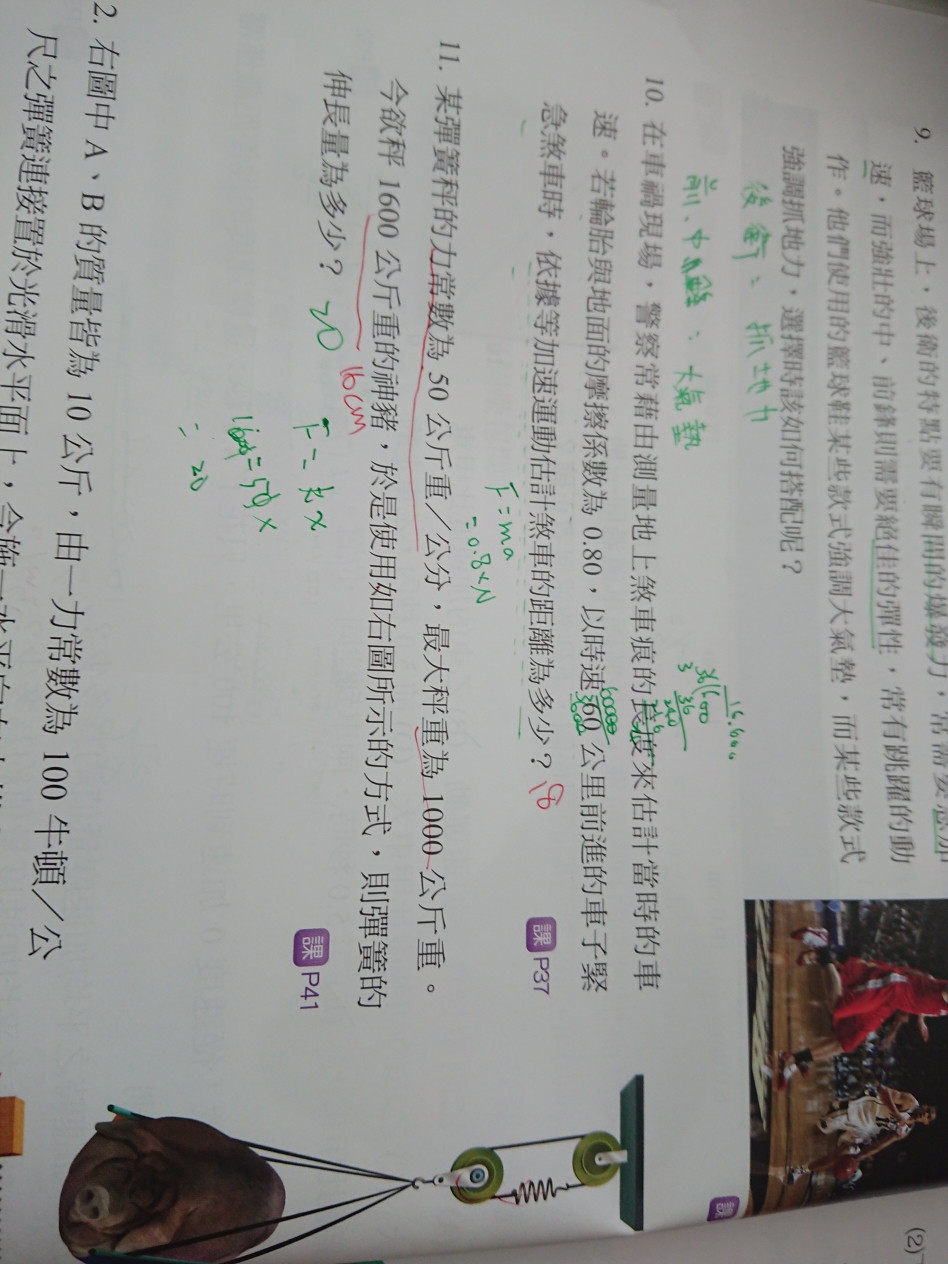 9. 籃球場上，後衛的特點要有瞬間的爆發力，常需要
速，而強壯的中、前鋒則需要絕佳的彈性，常有跳躍的動
作。他們使用的籃球鞋某些款式強調大氣墊，而某些款式
強調抓地力，選擇時該如何搭配呢？
後衛：抓地力
前、中鋒：大氣墊
課
10. 在車禍現場，警察常藉由測量地上煞車痕的長度來估計當時的車
速。若輪胎與地面的摩擦係數為 0.80，以時速 60 公里前進的車子緊
急煞車時，依據等加速運動估計煞車的距離為多少？ 18
課 P37
F=ma
=0.8×N
11. 某彈簧秤的力常數為 50 公斤重／公分，最大秤重為 1000 公斤重。
今欲秤 1600 公斤重的神豬，於是使用如右圖所示的方式，則彈簧的
伸長量為多少？ 20 16cm
課 P41
F=kx
1600=50x
=20
2. 右圖中 A、B 的質量皆為 10 公斤，由一力常數為 100 牛頓／公
尺之彈簧連接置於光滑水平面上，今施一水平
(2)